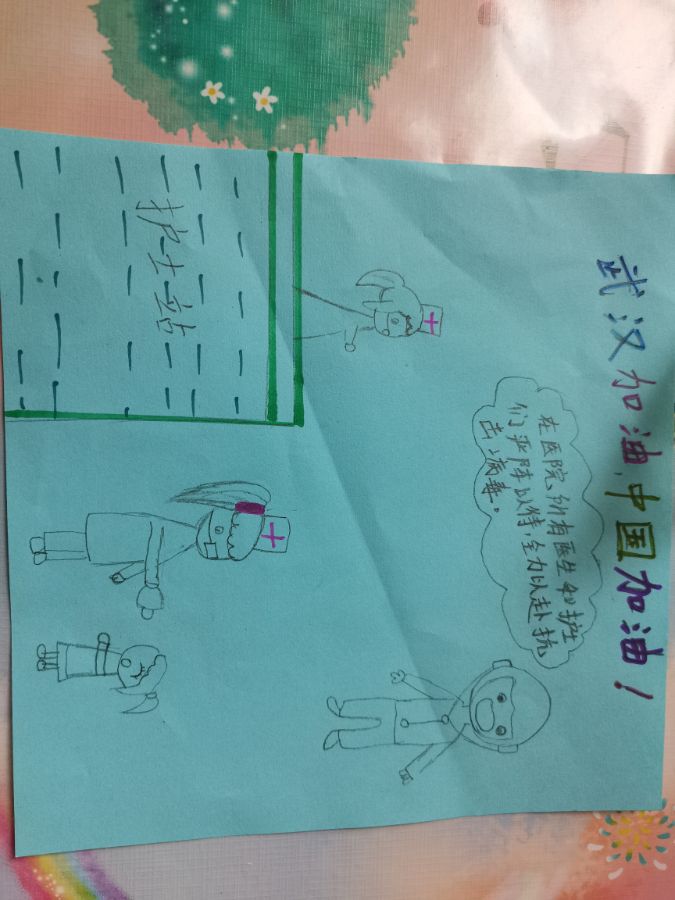 武汉加油,中国加油!
在医院,所有医生和护士
们严阵以待,全力以赴抗
击病毒。
护士站